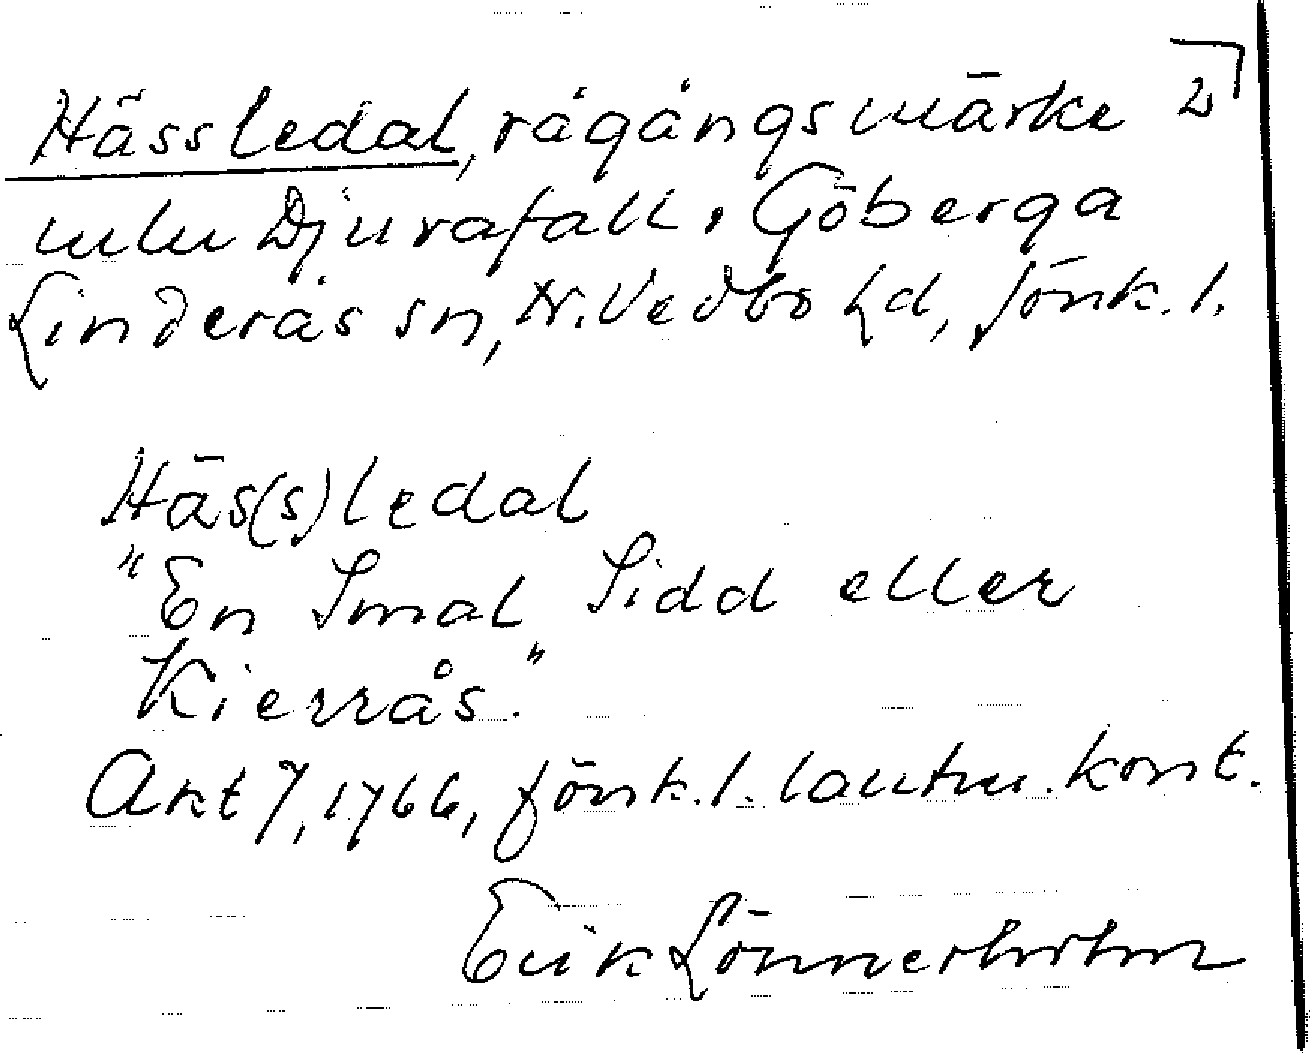 Hässledal, rågångsmärke 2
mlm Djurafall, Göberga
Linderås sn, N. Vedbo hd, Jönk. l.
Häs(s)ledal
"En Smal Sidd eller
Kierrås."
Akt 7, 1766, Jönk. l. lantm. kont.
Erik Lönnerholm